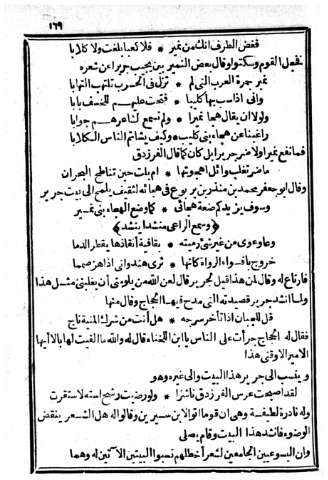 ١٦٩
فغض الطرف انك من نمير * فلا كعبا بلغت ولا كلابا
فخجل القوم وسكتوا وقال بعض النميريين يجيب جريرا عن شعره
نمير جمرة العرب التى لم * تزل فى الحرب تلتهب التهابا
وانى اذ أسب بها كليبا * فتحت عليهم للخسف بابا
ولولا ان يقال هجا نميرا * ولم نسمع لشاعرهم جوابا
رغبنا عن هجاء بنى كليب * وكيف يشاتم الناس الكلابا
فما نفع نميرا ولا ضر جريرا بل كان كما قال الفرزدق
ما ضر تغلب وائل أهجوتها * ام بلت حين تناطح البحران
وقال ابو جعفر محمد بن منذر بن يربوع فى هجائه لثقيف يلمح الى بيت جرير
وسوف يزيدكم ضعة هجائى * كما وضع الهجاء بنى نمير
(وسمع الراعى منشدا ينشد)
وعاو عوى من غير شئ رميته * بقافية أنفاذها يقطر الدما
خروج بافواه الرواة كانها * قرى هندوانى اذا هز صمما
فارتاع له وقال لمن هذا قيل لجرير قال لعن الله من يلومنى أن يغلبنى مثل هذا
ولما انشد جرير قصيدته التى مدح فيها الحجاج وقال منها
قل للجبان اذا تأخر سرجه * هل أنت من شرك المنية ناج
فقال له الحجاج جرأت على الناس يا ابن اللخناء قال له والله ما القيت لها بالا أيها
الامير الا وقتى هذا
وينسب الى جرير هذا البيت والى غيره وهو
لقد اصبحت عرس الفرزدق ناشزا * ولو رضيت رشح استه لاستقرت
وله نادرة لطيفة وهى ان قوما اتوا ابن سيرين وقالوا له هل الشعر ينقض
الوضوء فانشد هذا البيت وقام يصلى
وان اليسوعيين الجامعين لشعر أخطلهم نسبوا البيتين الآتيين له وهما